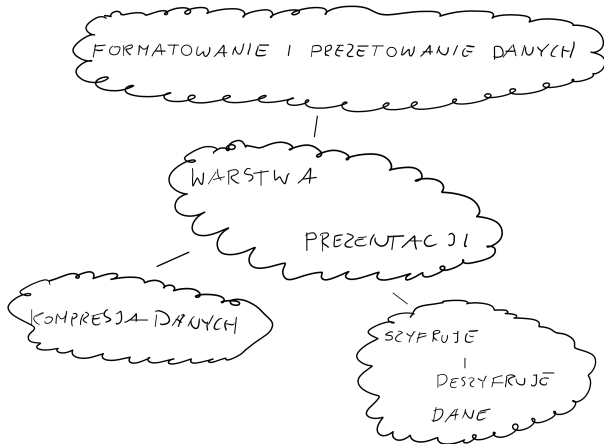 FORMATOWANIE I PREZETOWANIE DANYCH
WARSTWA
PREZENTACJI
KOMPRESJA DANYCH
SZYFRUJE
I
DESZYFRUJE
DANE